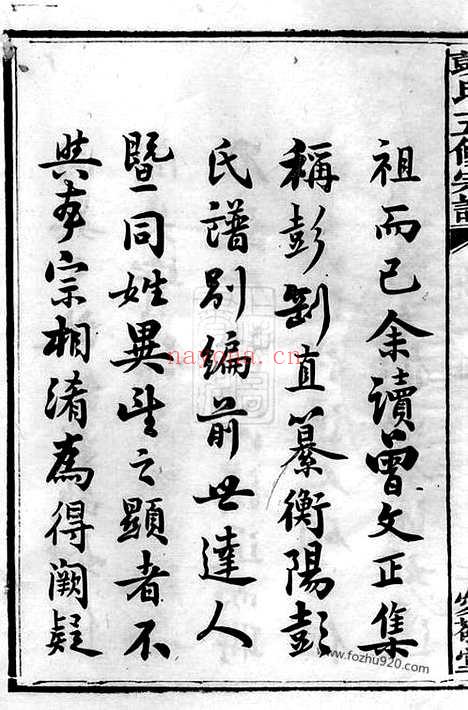 祖而已余讀曾文正集
稱彭剛直纂衡陽彭
氏譜別編前世達人
暨同姓異望之顯者不
與本宗相淆為得闕疑
彭氏五修宗譜
nayona.cn
www.fozhu920.com